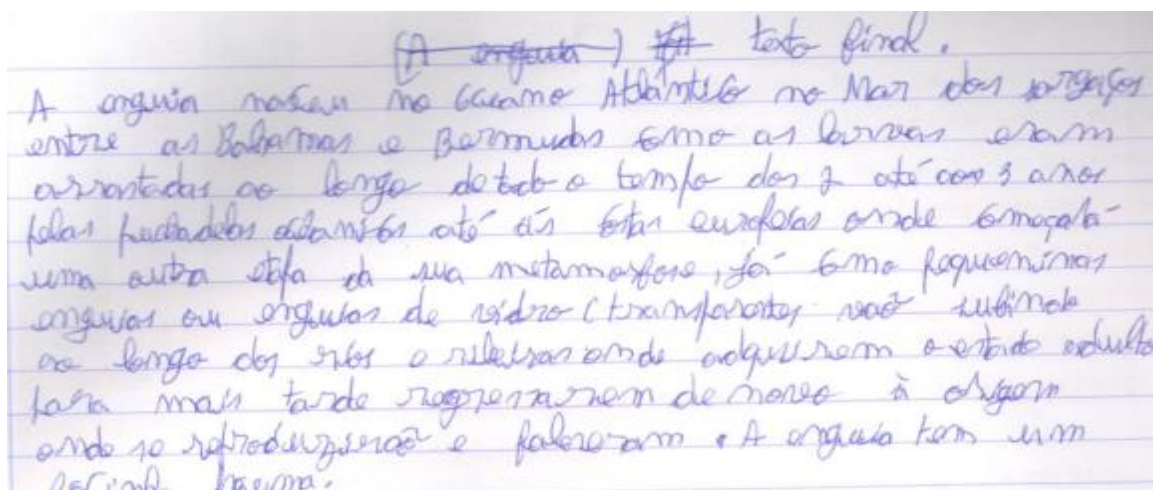 (A enguia) texto final.
A enguia nasceu no Oceano Atlântico no Mar dos sargaços
entre as Bahamas e Bermudas como as larvas eram
arrastadas ao longo de todo o tempo dos 2 até aos 3 anos
pelas até ás europeias onde
uma outra etapa da sua metamorfose, já como pequeninas
enguias ou enguias de vidro (transparentes vaõ subindo
ao longo dos rios e ribeiras onde adquirem o estado adulto
para mais tarde regressarem de novo à origem
onde se e . A enguia tem um